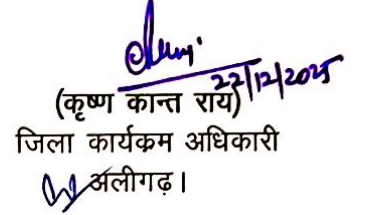 22/12/2025
(कृष्ण कान्त राय)
जिला कार्यक्रम अधिकारी
अलीगढ़।